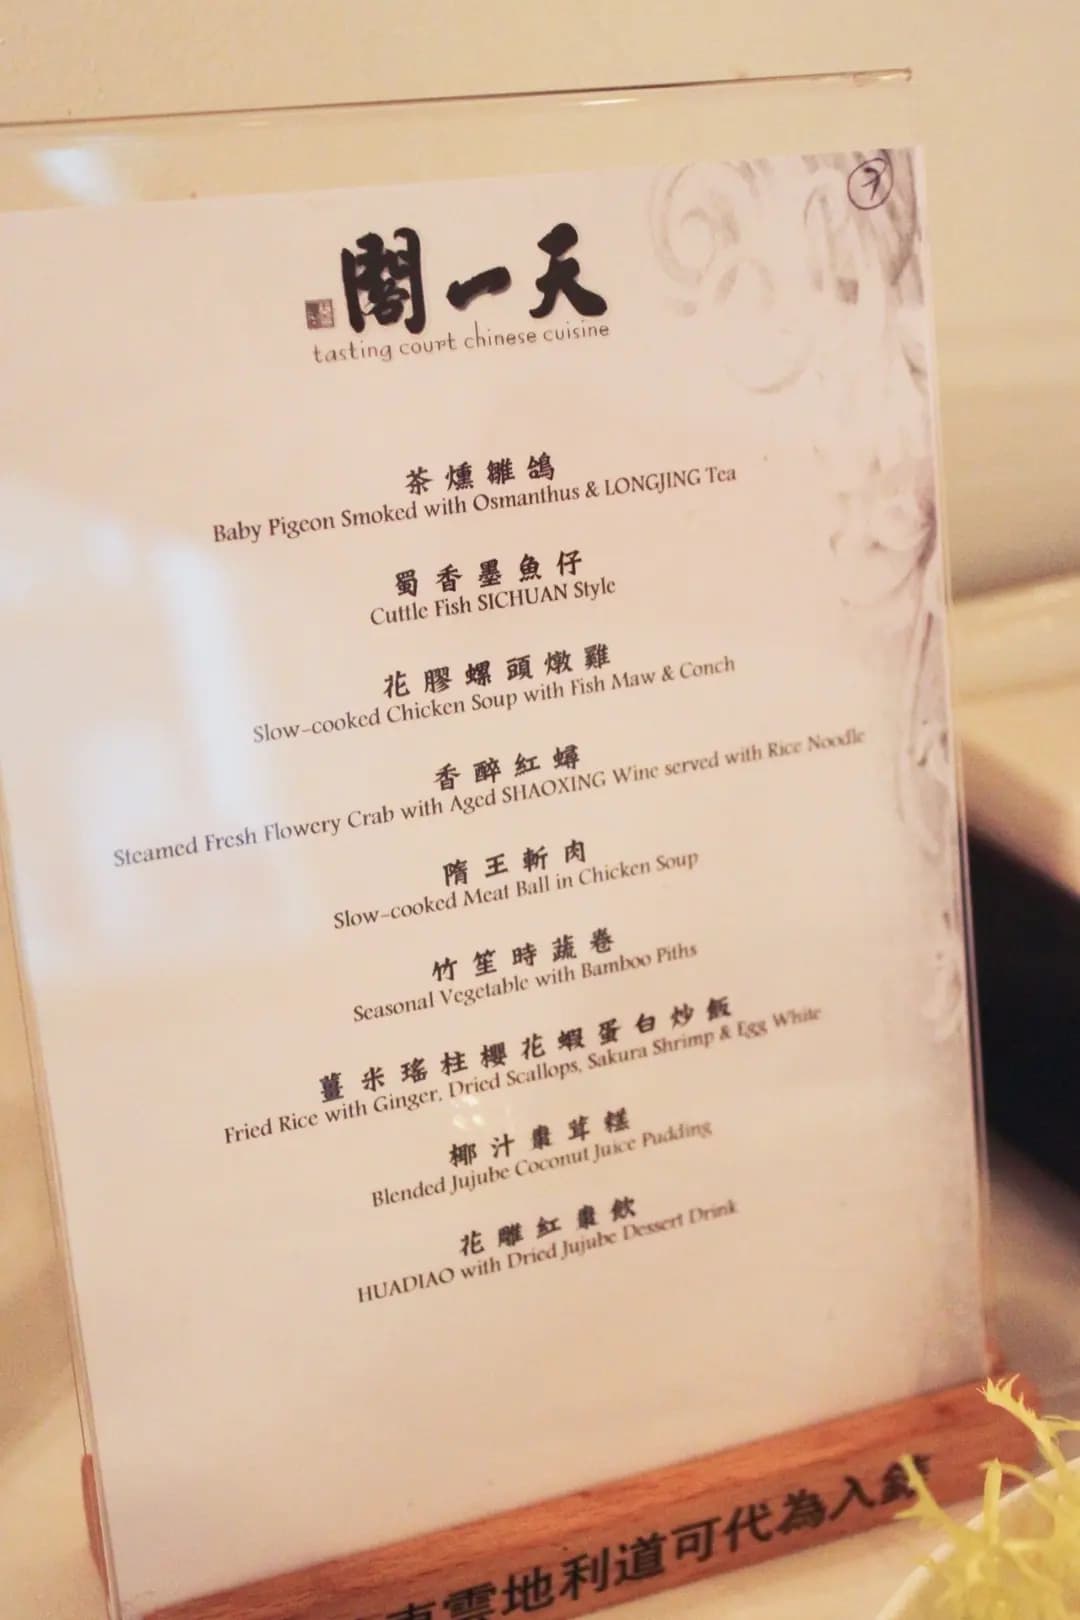 閣一天
tasting court chinese cuisine
茶燻雛鴿
Baby Pigeon Smoked with Osmanthus & LONGJING Tea
蜀香墨魚仔
Cuttle Fish SICHUAN Style
花膠螺頭燉雞
Slow-cooked Chicken Soup with Fish Maw & Conch
香醉紅蟳
Steamed Fresh Flowery Crab with Aged SHAOXING Wine served with Rice Noodle
隋王斬肉
Slow-cooked Meat Ball in Chicken Soup
竹笙時蔬卷
Seasonal Vegetable with Bamboo Piths
薑米瑤柱櫻花蝦蛋白炒飯
Fried Rice with Ginger, Dried Scallops, Sakura Shrimp & Egg White
椰汁棗茸糕
Blended Jujube Coconut Juice Pudding
花雕紅棗飲
HUADIAO with Dried Jujube Dessert Drink
東雲地利道可代為入錢